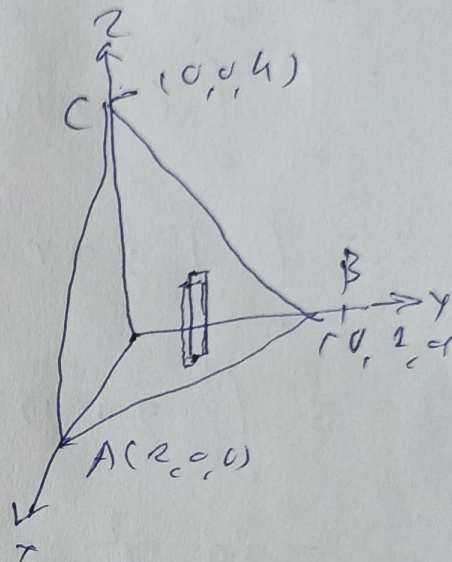 Z
C (0,0,4)
B
Y
(0,2,0
A(2,0,0)
x